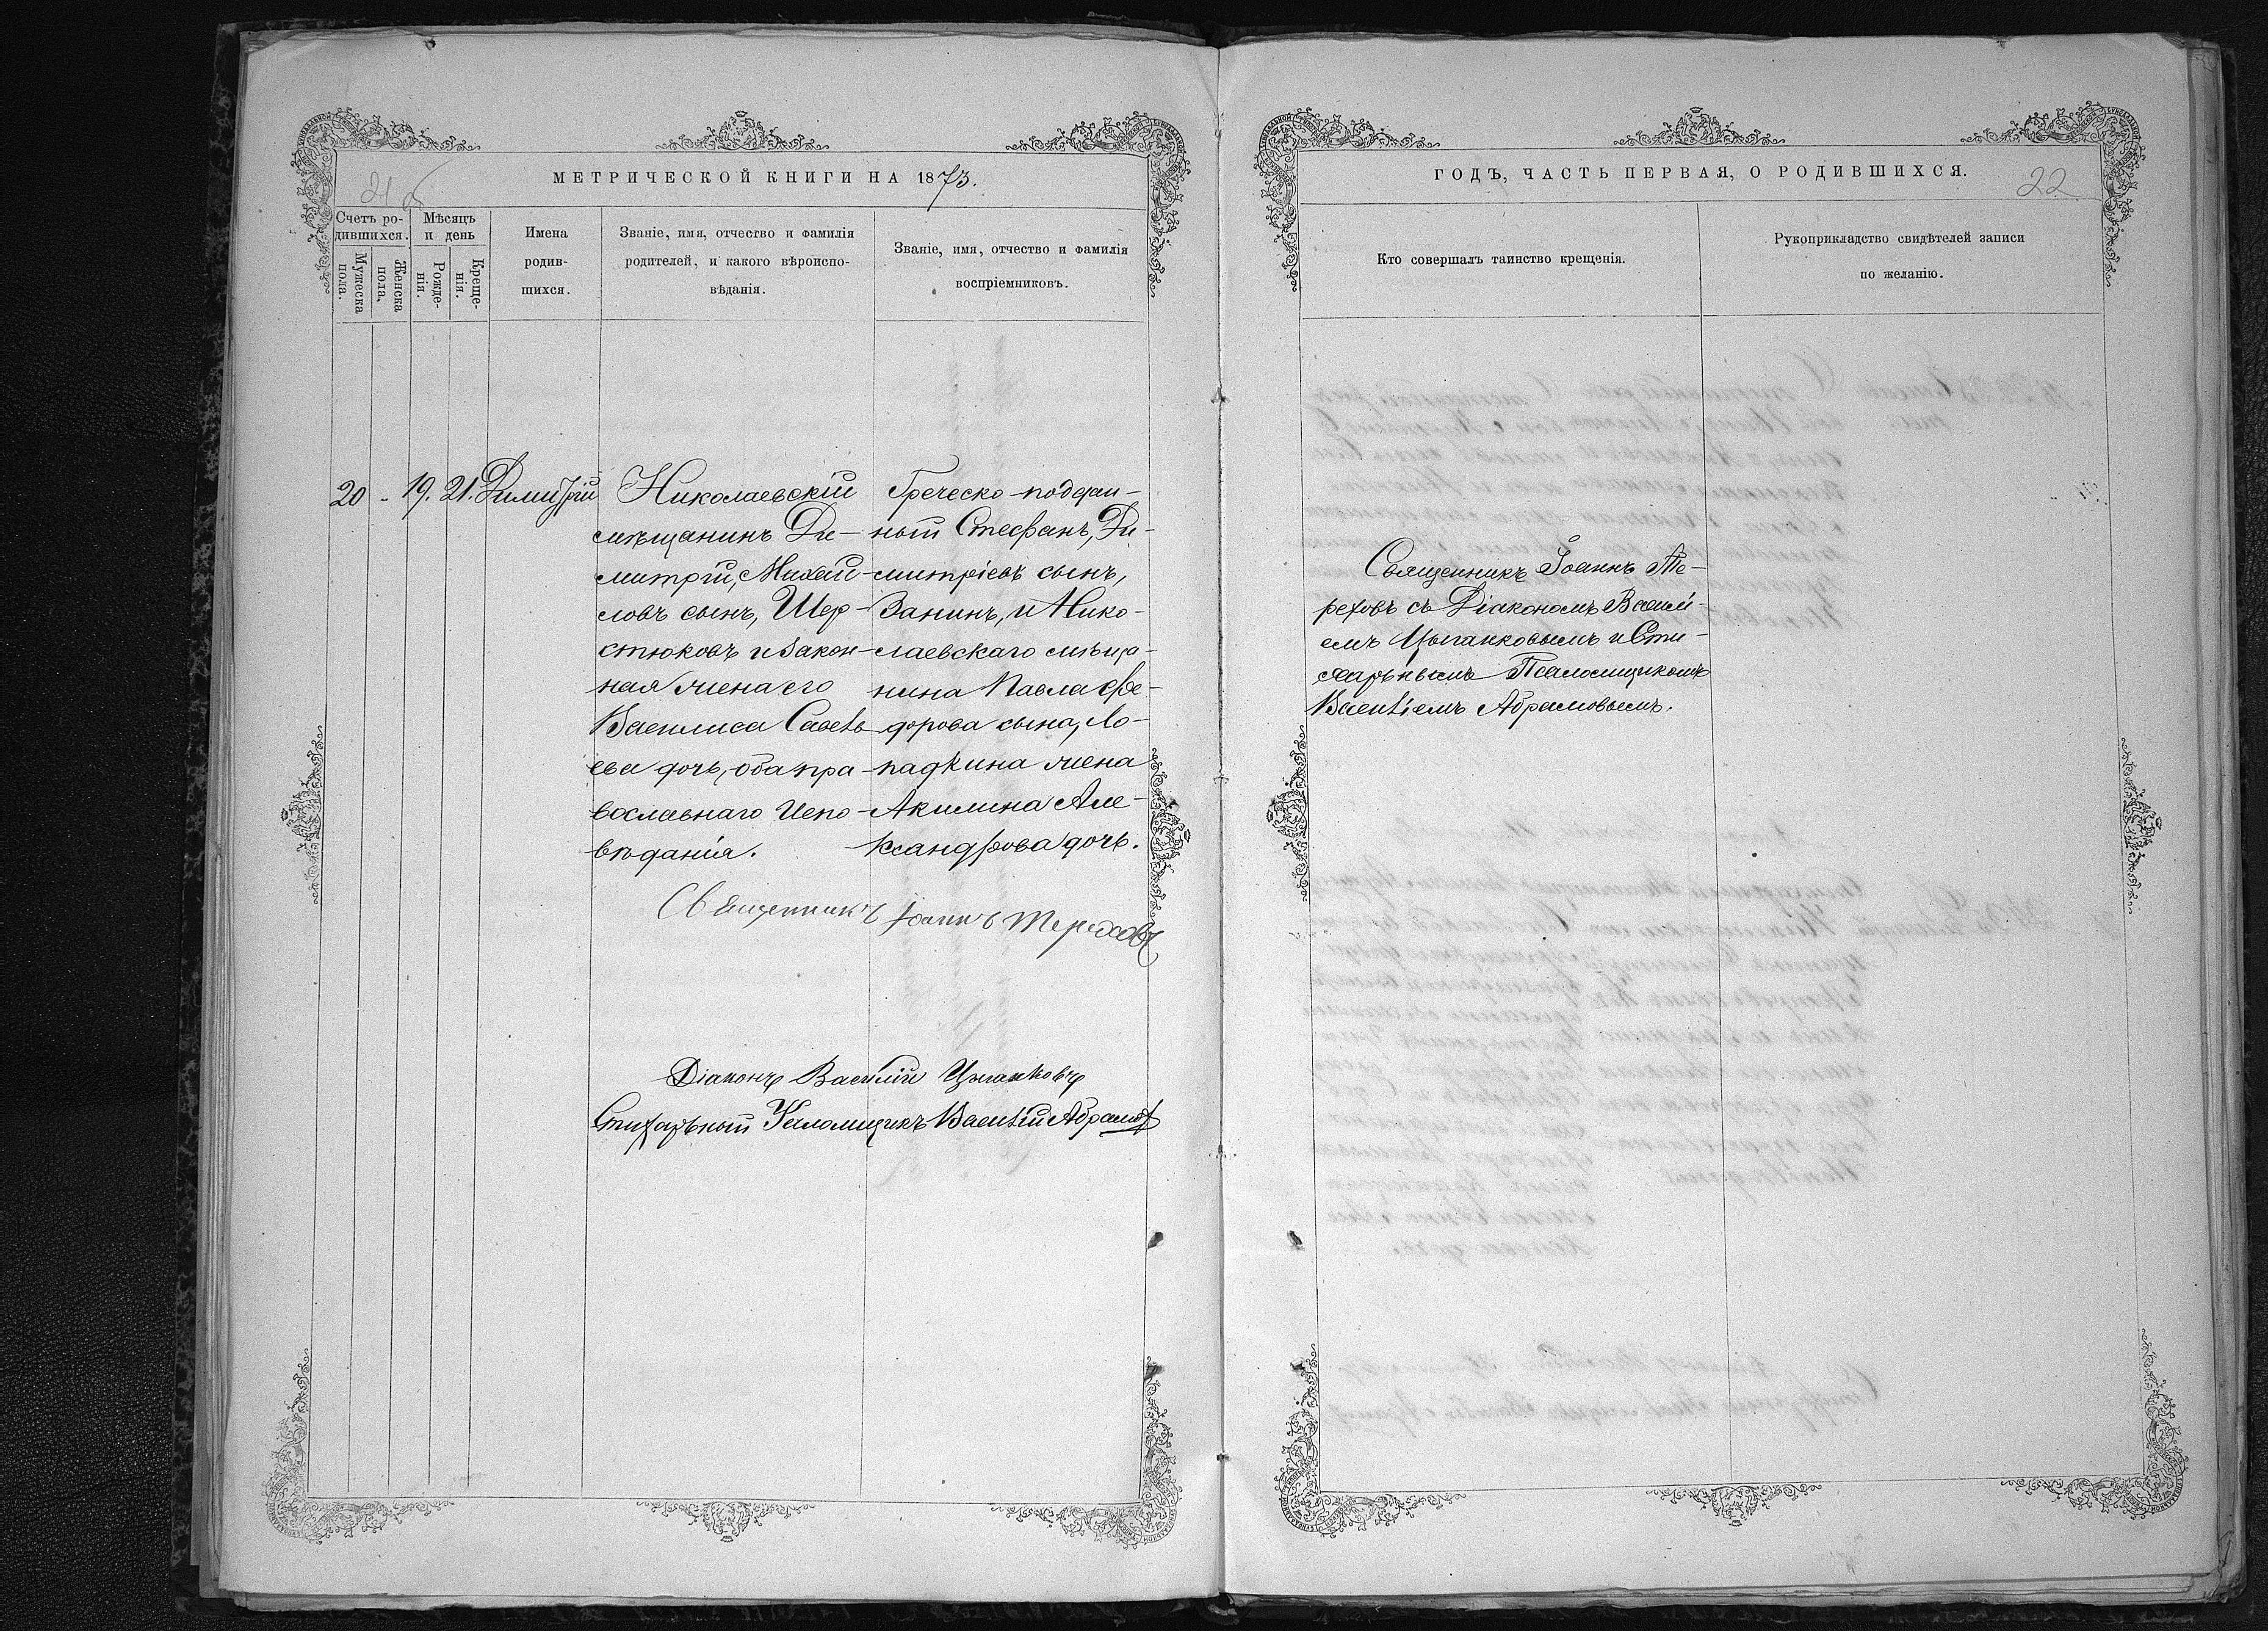 21 об
МЕТРИЧЕСКОЙ КНИГИ НА 1873.
Счетъ ро-
дившихся.
Мужеска
пола.
Женска
пола.
Мѣсяцъ
и день
Рожде-
нія.
Креще-
нія.
Имена
родив-
шихся.
Званіе, имя, отчество и фамилія
родителей, и какого вѣроиспо-
вѣданія.
Званіе, имя, отчество и фамилія
воспріемниковъ.
20 - 19. 21. Димитрій
Николаевскій
мѣщанинъ Ди-
митрій, Михай-
ловъ сынъ, Шер-
стюковъ и закон-
ная жена его
Василиса Савель
ева дочь, оба пра-
вославнаго Испо-
вѣданія.
Греческо-поддан-
ный Стефанъ, Ди-
митріевъ сынъ,
Занинъ, и Нико-
лаевскаго мѣща-
нина Павла Фе-
дорова сына, Ло-
падкина жена
Акилина Але-
ксандрова дочь.
Священникъ Іоаннъ Тереховъ
Діаконъ Василій Цыганковъ
Стихарный Псаломщикъ Васи́лій Абрамов
ГОДЪ, ЧАСТЬ ПЕРВАЯ, О РОДИВШИХСЯ.
22
Кто совершалъ таинство крещенія.
Рукоприкладство свидѣтелей записи
по желанію.
Священникъ Іоаннъ Те-
реховъ съ Діакономъ Васили-
емъ Цыганковымъ и Сти-
харнымъ Псаломщикомъ
Василіемъ Абрамовымъ.